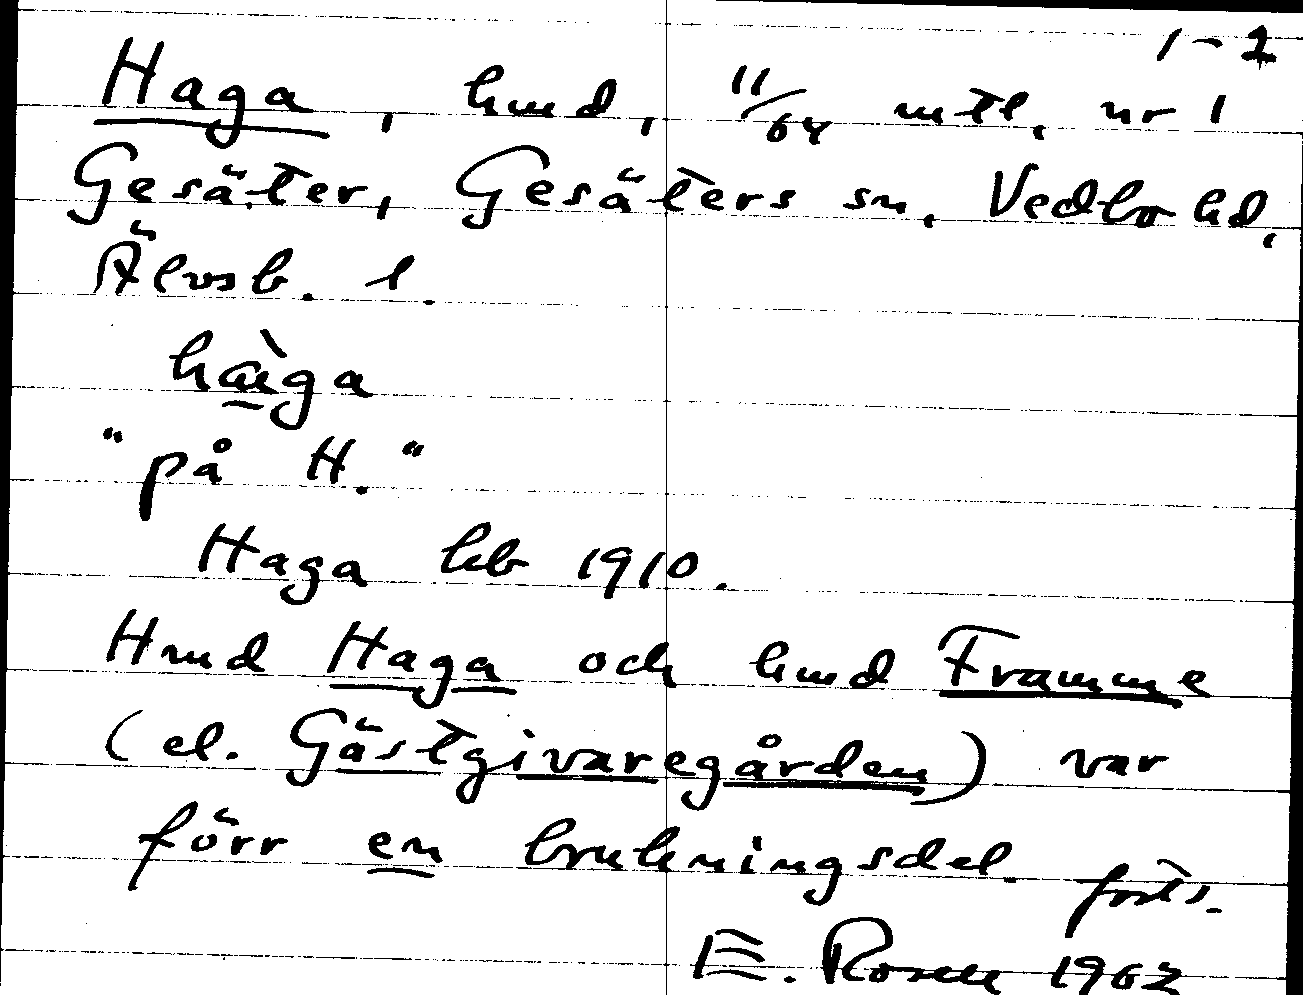 1-2
Haga, hmd, 11/64 mtl. nr 1
Gesäter, Gesäters sn, Vedbo hd,
Älvsb. l.
hàga
"på H."
Haga kb 1910.
Hmd Haga och hmd Framme
(el. Gästgivaregården) var
förr en brukningsdel. forts.
E. Rosell 1962